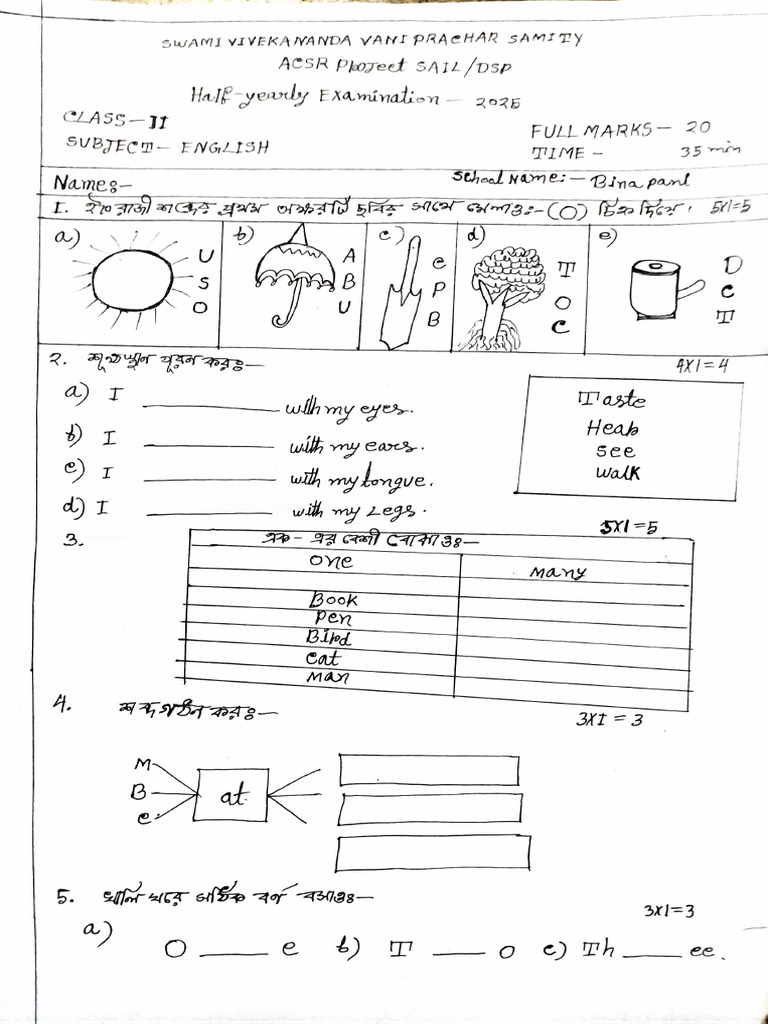 SWAMI VIVEKANANDA VANI PRACHAR SAMITY
ACSR Project SAIL/DSP
Half-yearly Examination — 2025
CLASS — II
FULL MARKS — 20
SUBJECT — ENGLISH
TIME — 35 min
Name:-
School Name:- Bina pani
1. ইংরাজী শব্দের প্রথম অক্ষরটি ছবির সাথে মেলাও:- (O) চিহ্ন দিয়ে। 5x1=5
a) U S O
b) A B U
c) C P B
d) T O C
e) D C T
২. শূন্যস্থান পূরন কর:— 4x1=4
a) I ______ with my eyes.
b) I ______ with my ears.
c) I ______ with my tongue.
d) I ______ with my Legs.
Taste
Hear
See
Walk
3. এক-এর বেশী বোঝাও:— 5x1=5
One Many
Book
Pen
Bird
Cat
Man
4. শব্দ গঠন কর:— 3x1=3
M
B
C
at
5. খালি ঘরে সঠিক বর্ণ বসাও:— 3x1=3
a) O ____ e b) T ____ o c) Th ____ ee.